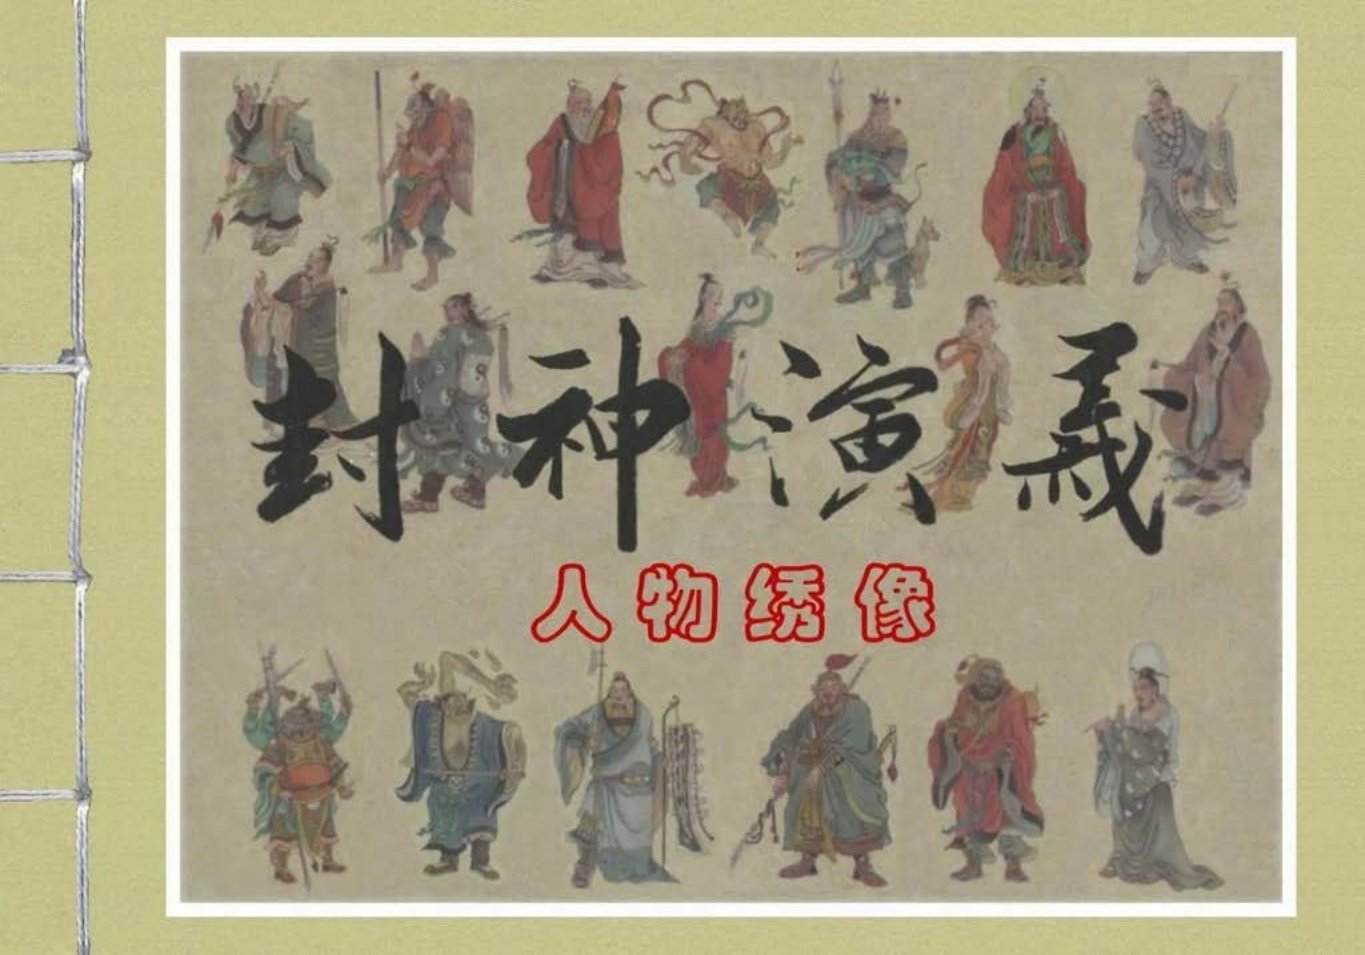 封神演義
人物绣像